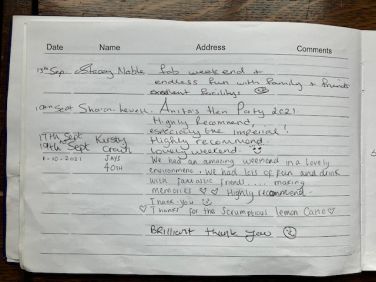 Date Name Address Comments
13th Sep Stacey Noble fab weekend +
endless fun with family + friends
excellent facilitys
Sept Sharon Anita's Hen Party 2021
Highly Recommend,
especially the imperial!
17th Sept Kirsty Highly recommend.
19th Sept Crouch lovely weekend.
1-10-2021 JAYS We had an amazing weekend in a lovely
40TH environment. We had lots of fun and drink
with fantastic friends.... making
memories ♡ ♡ Highly recommend.
Thank you
♡ Thanks for the scrumptious lemon cake ♡
Brilliant thank you